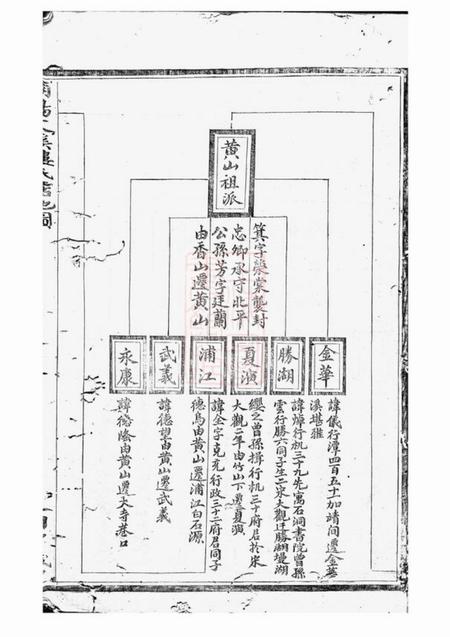 黄山祖派
箕字榮棠襲封
忠卿承守北平
公孫芳字廷蘭
由香山遷黄山
金華
諱儀行淳四百五十加靖間遷金華
溪堪雅
勝湖
諱焯行杭三十九先寓石洞書院曾孫
雲行勝六同子生二宋大觀遷勝湖墁湖
夏演
纓之曾孫揖行杭三十府君於宋
大觀二年由竹山下遷夏演
浦江
諱全字克充行政三十二府君同子
德鳥由黄山遷浦江白石源
武義
諱德望由黄山遷武義
永康
諱德隆由黄山遷大寺巷口